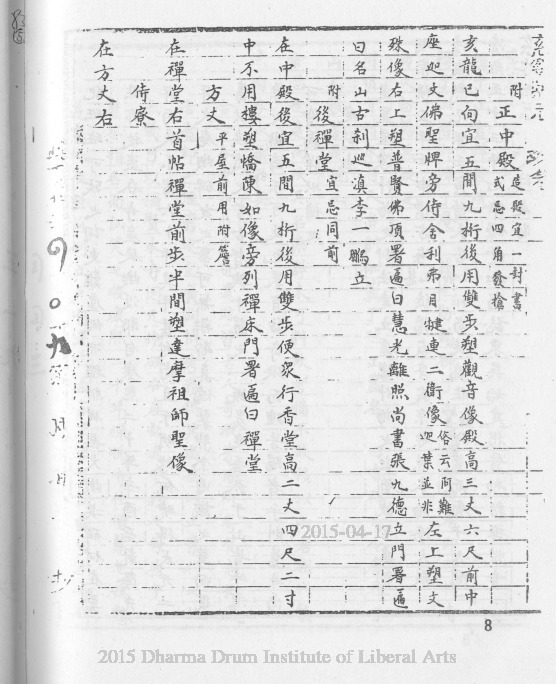 附 正中殿 造殿宜一封書式忌四角發槍
亥龍巳向宜五間九桁後用雙步塑觀音像殿高三丈六尺前中
座迦文佛聖牌旁侍舍利弗目犍連二衛像俗云阿難迦葉並非左上塑文
殊像右上塑普賢佛頂署匾曰慧光離照尚書張九德立門署匾
曰名山古剎巡滇李一鵬立
附 後禪堂 宜忌同前
在中殿後宜五間九桁後用雙步便眾行香堂高二丈四尺二寸
中不用樓塑憍陳如像旁列禪床門署匾曰禪堂
方丈 平屋前用附簷
在禪堂右首帖禪堂前步半間塑達摩祖師聖像
侍寮
在方丈右
8
2015-04-17
2015 Dharma Drum Institute of Liberal Arts